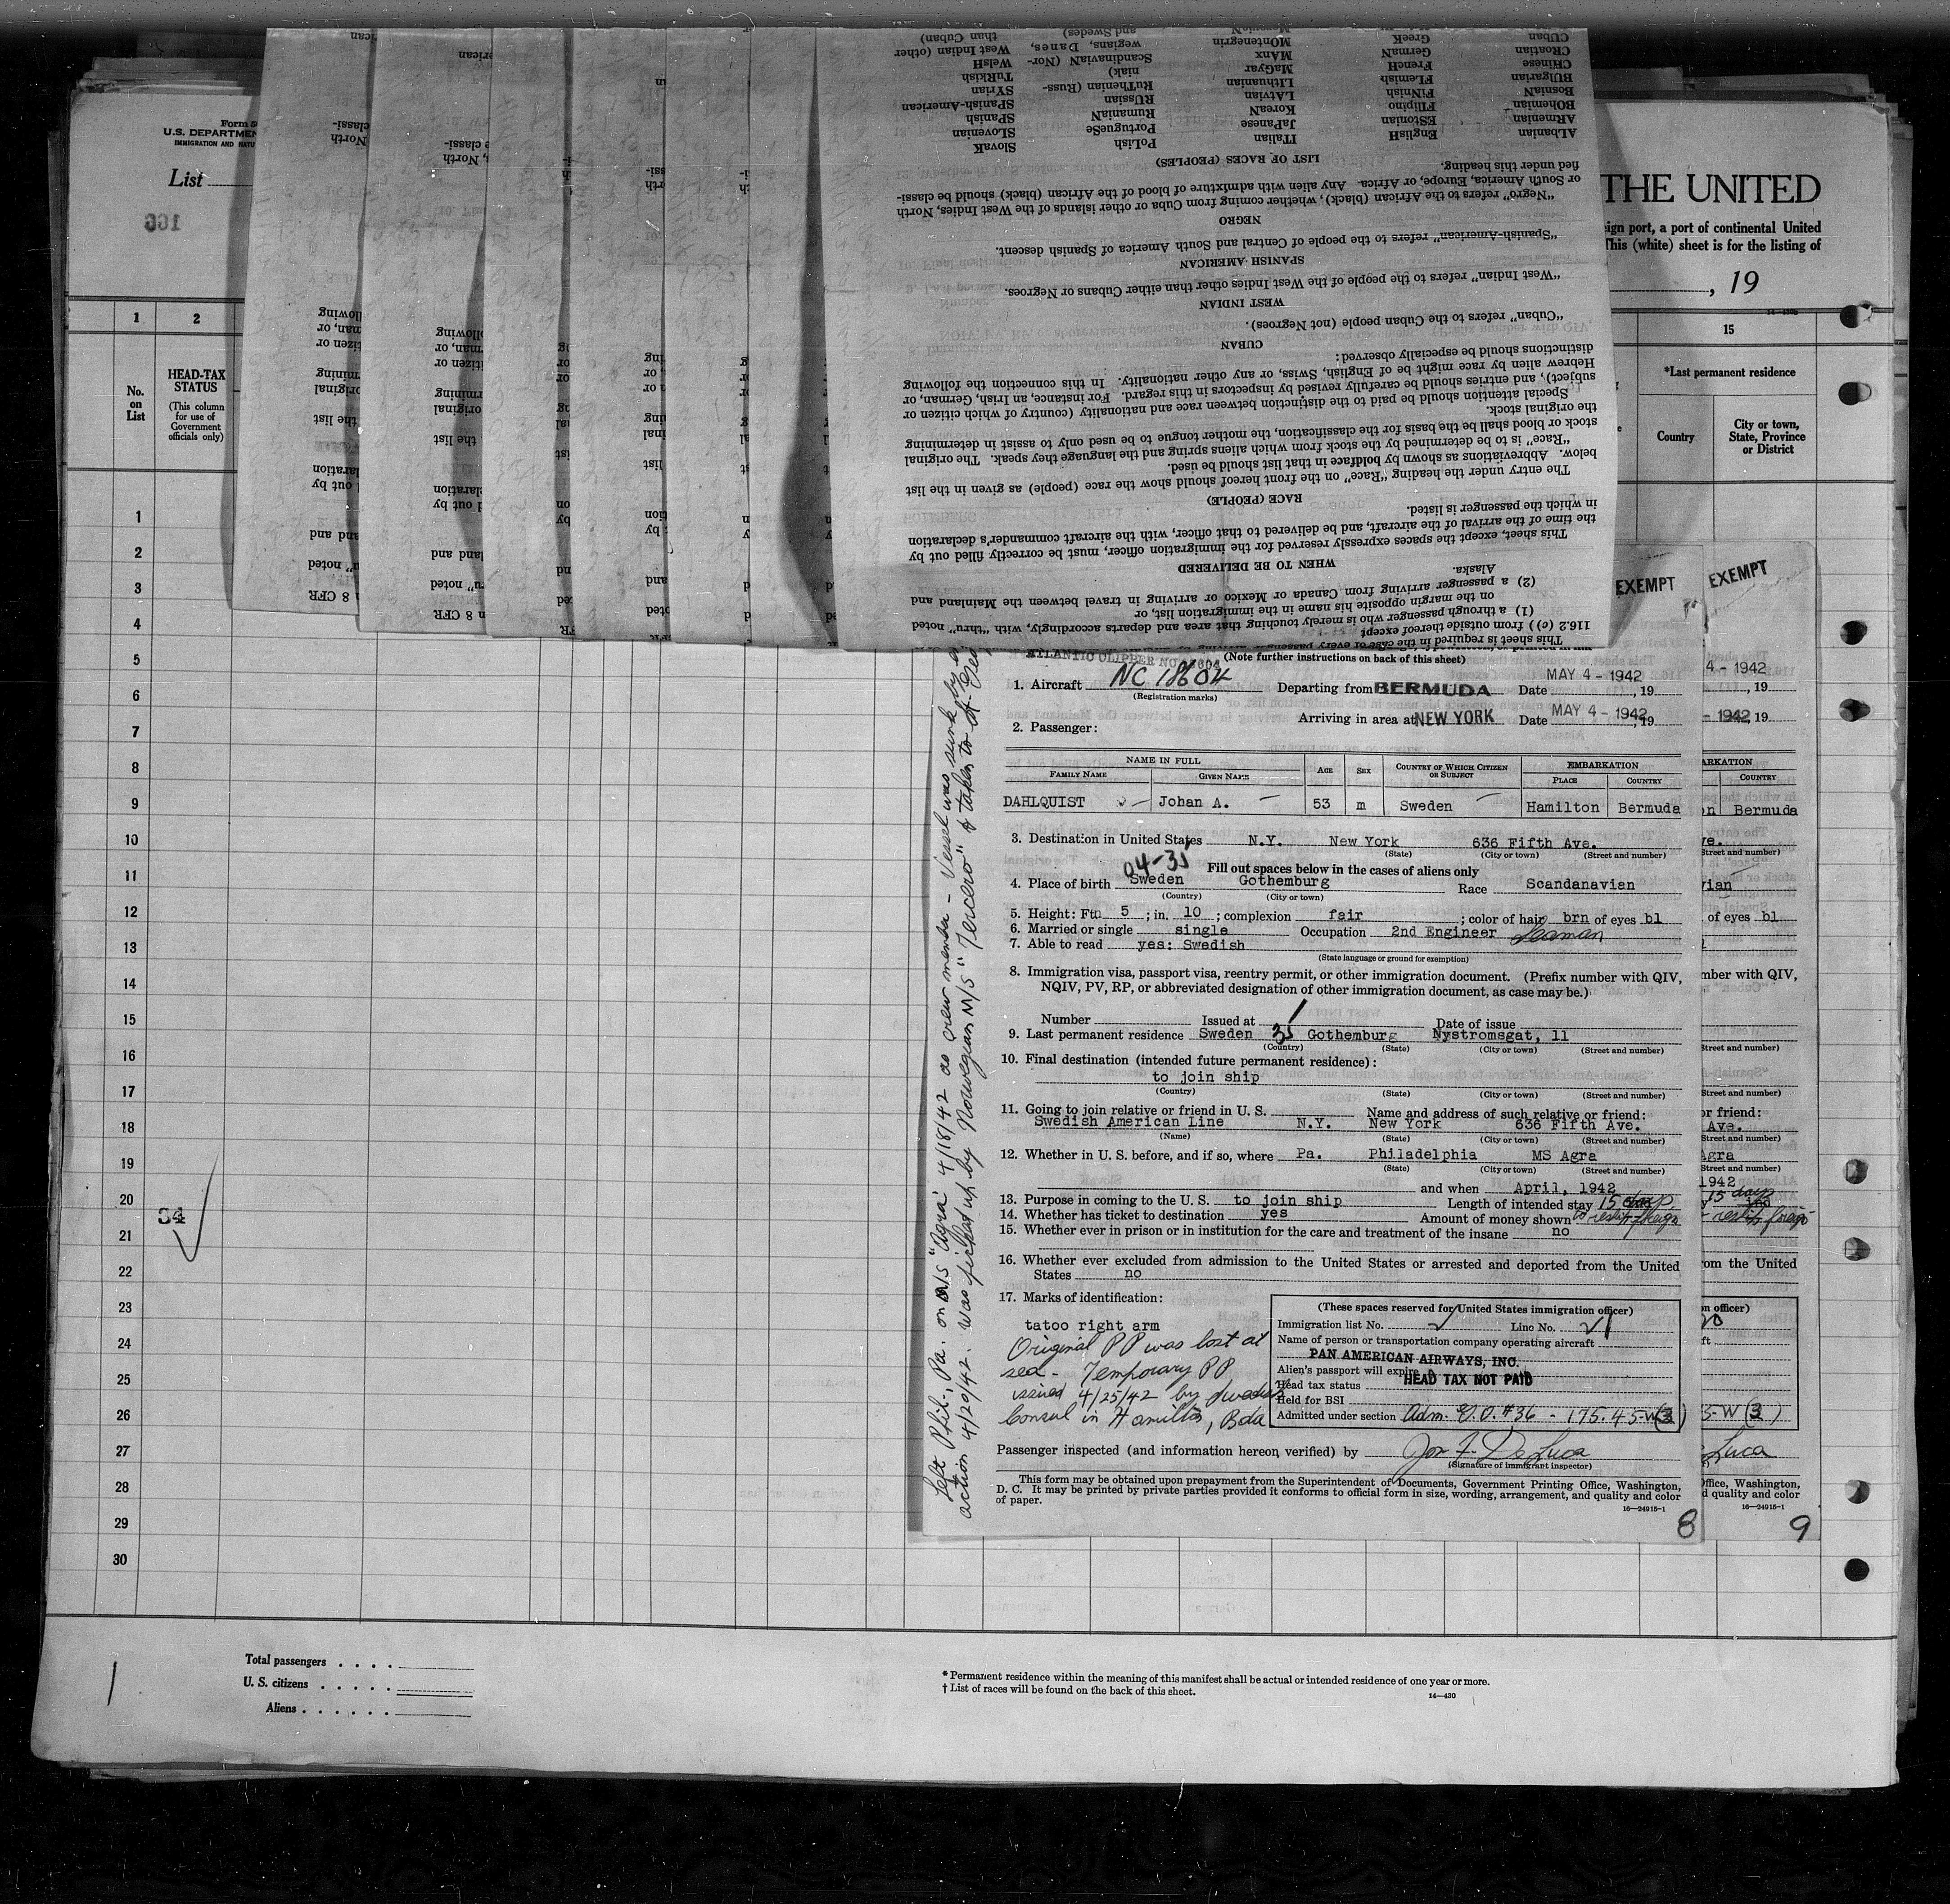 Form
U.S. DEPARTMEN
IMMIGRATION AND NATU
List
166
THE UNITED
eign port, a port of continental United
This (white) sheet is for the listing of
, 19
1 2 15
No. on List
HEAD-TAX STATUS
(This column for use of Government officials only)
*Last permanent residence
Country
City or town, State, Province or District
1
2
3
4
5
6
7
8
9
10
11
12
13
14
15
16
17
18
19
20
21
22
23
24
25
26
27
28
29
30
34
116.2 (c)) from outside thereof except
This sheet is required in the case of every passenger
(1) a through passenger who is merely touching that area and departs accordingly, with "thru" noted
on the margin opposite his name in the immigration list, or
(2) a passenger arriving from Canada or Mexico or arriving in travel between the Mainland and
Alaska.
WHEN TO BE DELIVERED
This sheet, except the spaces expressly reserved for the immigration officer, must be correctly filled out by
the time of the arrival of the aircraft, and be delivered to that officer, with the aircraft commander's declaration
in which the passenger is listed.
RACE (PEOPLE)
The entry under the heading "Race" on the front hereof should show the race (people) as given in the list
below. Abbreviations as shown by boldface in that list should be used.
"Race" is to be determined by the stock from which aliens spring and the language they speak. The original
stock or blood shall be the basis for the classification, the mother tongue to be used only to assist in determining
the original stock.
Special attention should be paid to the distinction between race and nationality (country of which citizen or
subject), and entries should be carefully revised by inspectors in this regard. For instance, an Irish, German, or
Hebrew alien by race might be of English, Swiss, or any other nationality. In this connection the following
distinctions should be especially observed:
CUBAN
"Cuban" refers to the Cuban people (not Negroes).
WEST INDIAN
"West Indian" refers to the people of the West Indies other than either Cubans or Negroes.
SPANISH-AMERICAN
"Spanish-American" refers to the people of Central and South America of Spanish descent.
NEGRO
"Negro" refers to the African (black), whether coming from Cuba or other islands of the West Indies, North
or South America, Europe, or Africa. Any alien with admixture of blood of the African (black) should be classi-
fied under this heading.
LIST OF RACES (PEOPLES)
ALbanian ENglisH ITalian POLish SlovaK
ARmenian EStonian JaPanese PortugueSe SLOvenian
BOHemian FIlipino KoreaN RumaniaN SPanish
BosniaN FiNnish LAtvian RUssian SPanish-American
BUlgarian FLemish LIthuanian RuThenian (Russ- SYrian
CHinese FrencH MaGyar niak) TuRkish
CRoatian GermaN MAnx ScandinaviaN (Nor- WelsH
CUban GreeK MOntenegrin wegians, Danes, West Indian (other
and Swedes) than Cuban)
EXEMPT
EXEMPT
ATLANTIC CLIPPER NC 18604
(Note further instructions on back of this sheet)
1. Aircraft NC 18604 Departing from BERMUDA Date MAY 4 - 1942, 19
(Registration marks)
Arriving in area at NEW YORK Date MAY 4 - 1942, 19
2. Passenger:
NAME IN FULL
FAMILY NAME GIVEN NAME AGE SEX COUNTRY OF WHICH CITIZEN OR SUBJECT EMBARKATION
PLACE COUNTRY
DAHLQUIST Johan A. 53 m Sweden Hamilton Bermuda
3. Destination in United States N.Y. New York 636 Fifth Ave.
(State) (City or town) (Street and number)
04-31
Fill out spaces below in the cases of aliens only
4. Place of birth Sweden Gothemburg Race Scandanavian
(Country) (City or town)
5. Height: Ft. 5 ; in. 10 ; complexion fair ; color of hair brn of eyes bl
6. Married or single single Occupation 2nd Engineer Seaman
7. Able to read yes: Swedish
(State language or ground for exemption)
8. Immigration visa, passport visa, reentry permit, or other immigration document. (Prefix number with QIV,
NQIV, PV, RP, or abbreviated designation of other immigration document, as case may be.)
Number Issued at Date of issue
9. Last permanent residence Sweden 31 Gothemburg Nystromsgat, 11
(Country) (State) (City or town) (Street and number)
10. Final destination (intended future permanent residence):
to join ship
(Country) (State) (City or town) (Street and number)
11. Going to join relative or friend in U. S. Name and address of such relative or friend:
Swedish American Line N.Y. New York 636 Fifth Ave.
(Name) (State) (City or town) (Street and number)
12. Whether in U. S. before, and if so, where Pa. Philadelphia MS Agra
(State) (City or town) (Street and number)
and when April, 1942
13. Purpose in coming to the U. S. to join ship Length of intended stay 15 days
14. Whether has ticket to destination yes Amount of money shown to reship foreign
15. Whether ever in prison or in institution for the care and treatment of the insane no
16. Whether ever excluded from admission to the United States or arrested and deported from the United
States no
17. Marks of identification:
tatoo right arm
Original PP was lost at
sea - Temporary PP
issued 4/25/42 by Swedish
Consul in Hamilton, Bda
(These spaces reserved for United States immigration officer)
Immigration list No. Line No. 21
Name of person or transportation company operating aircraft
PAN AMERICAN AIRWAYS, INC.
Alien's passport will expire
Head tax status HEAD TAX NOT PAID
Held for BSI
Admitted under section Adm. G.O. #36 - 175.45-W(3)
Passenger inspected (and information hereon verified) by Jos. F. DeLuca
(Signature of immigrant inspector)
This form may be obtained upon prepayment from the Superintendent of Documents, Government Printing Office, Washington,
D. C. It may be printed by private parties provided it conforms to official form in size, wording, arrangement, and quality and color
of paper.
16—24915-1
8
Left Phil., Pa. on M/S "Agra" 4/18/42 as crew member - Vessel was sunk by
action 4/20/42. Was picked up by Norwegian M/S "Tercero" & taken to St.
4 - 1942
, 19
- 1942, 19
ARKATION
COUNTRY
on Bermuda
ve.
Street and number)
vian
of eyes bl
mber with QIV,
Street and number)
Street and number)
or friend:
Ave.
Street and number)
Agra
Street and number)
1942
15 days
reship foreign
rom the United
on officer)
20
ft
5-W(3)
Luca
Office, Washington,
d quality and color
16—24915-1
9
Total passengers
U. S. citizens
Aliens
* Permanent residence within the meaning of this manifest shall be actual or intended residence of one year or more.
† List of races will be found on the back of this sheet.
14—430